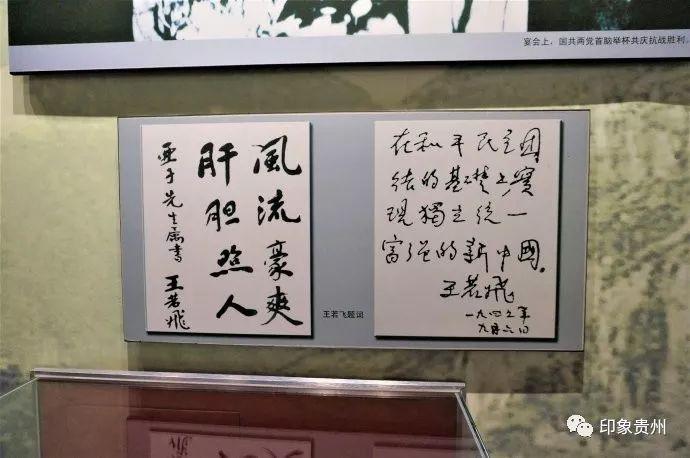 宴会上,国共两党首脑举杯共庆抗战胜利。
風流豪爽
肝胆照人
亜子先生属書
王若飛
王若飞题词
在和平民主團
结的基礎上實
現獨立統一
富强的新中國。
王若飛
一九四五年
九月六日
印象贵州